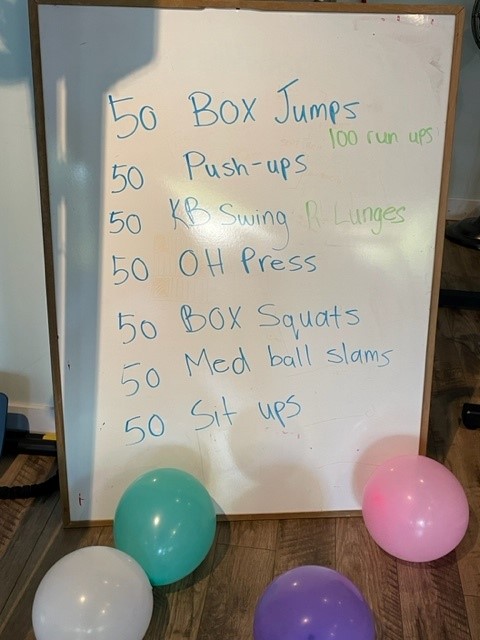 50 BOX Jumps
100 run ups
50 Push-ups
50 KB Swing R Lunges
50 OH Press
50 BOX Squats
50 Med ball slams
50 Sit ups